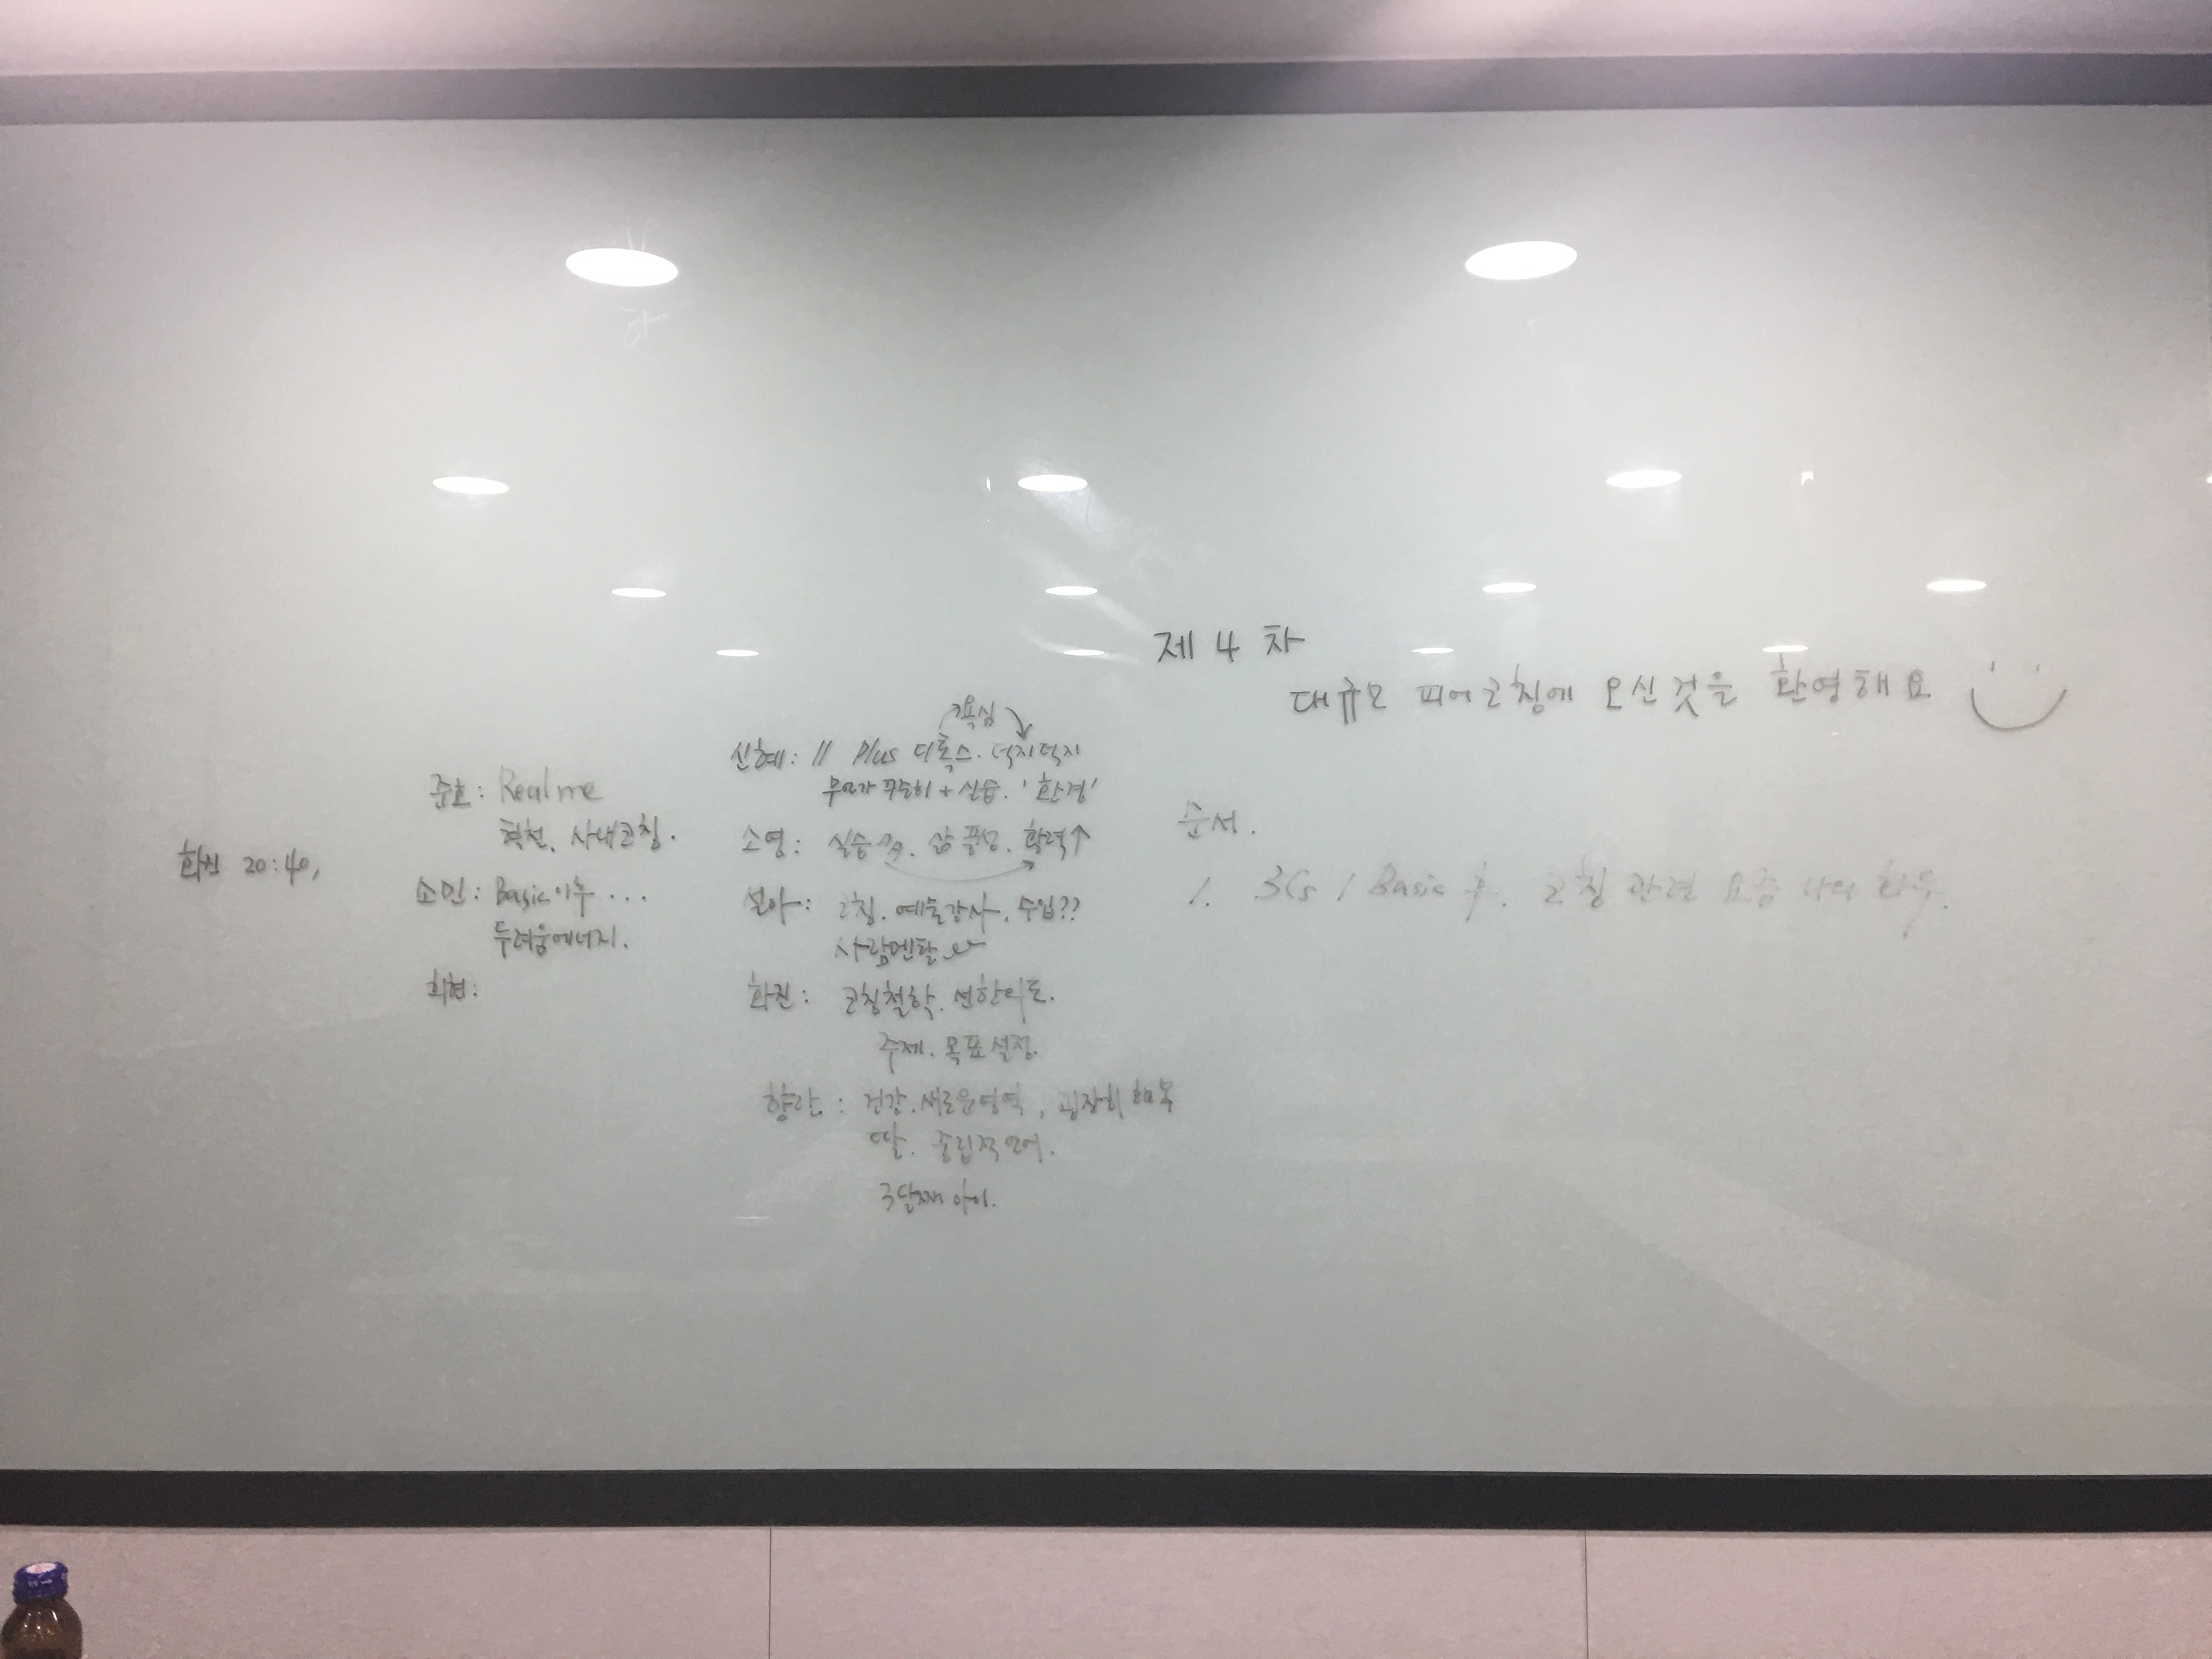 제 4 차
대규모 피어코칭에 오신것을 환영해요
순서.
1. 3Cs / Basic 후, 코칭 관련 요즘 나의 화두.
욕심
신혜: 11 Plus 디톡스. 덕지덕지
꾸준히 + 실습. '환경'
소영: 실습 삶 풍성. 활력↑
설아: 코칭. 예술강사. 수입??
사람멘탈
화진: 코칭철학. 선한의도.
주제. 목표설정.
향란: 건강. 새로운영역, 굉장히 행복
딸. 중립적언어.
3달째 아이.
준호: Real me
사내코칭.
소민: Basic이후 ...
두려움에너지.
희현:
화진 20:40,